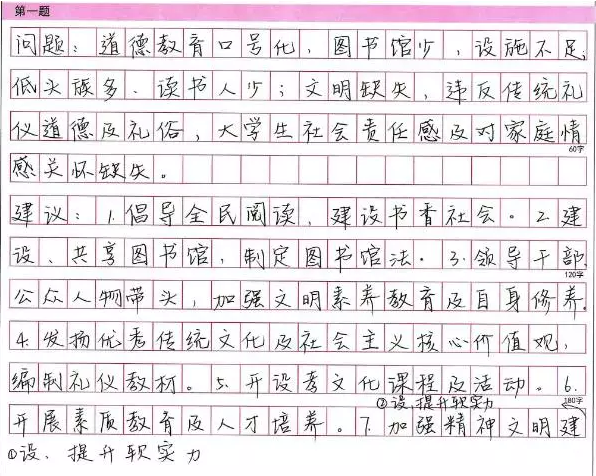 第一题
问题：道德教育口号化，图书馆少，设施不足；
低头族多、读书人少；文明缺失，违反传统礼
仪道德及礼俗，大学生社会责任感及对家庭情
60字
感关怀缺失。
建议：1.倡导全民阅读，建设书香社会。2.建
设、共享图书馆，制定图书馆法。3.领导干部
120字
公众人物带头，加强文明素养教育及自身修养。
4.发扬优秀传统文化及社会主义核心价值观，
编制礼仪教材。5.开设孝文化课程及活动。6.
②设，提升软实力
180字
开展素质教育及人才培养。7.加强精神文明建
①设、提升软实力